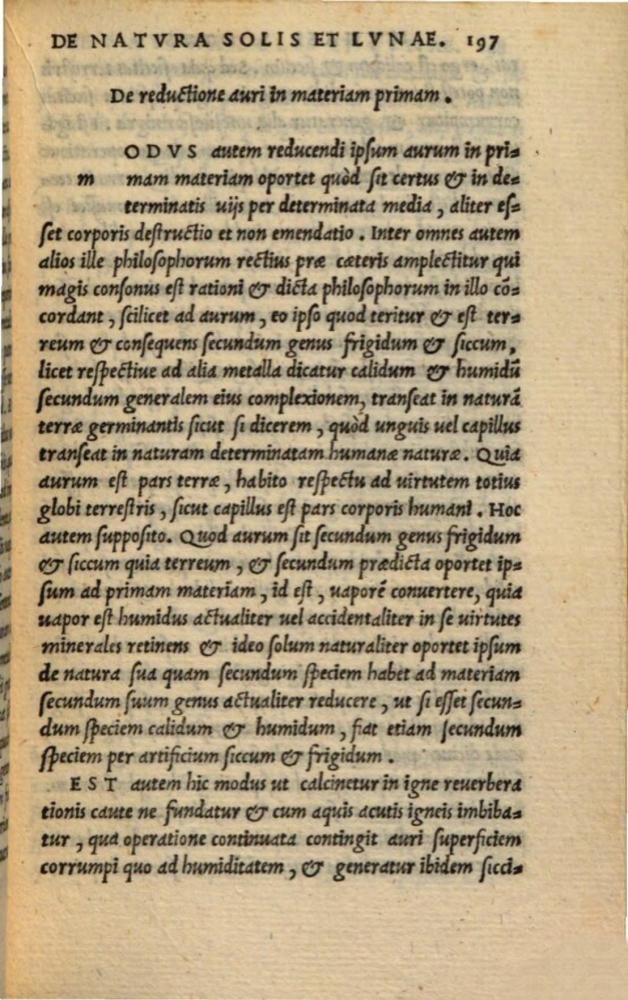 DE NATVRA SOLIS ET LVNAE. 197
De reductione auri in materiam primam.
m ODVS autem reducendi ipsum aurum in pri=
mam materiam oportet quòd sit certus & in de=
terminatis uijs per determinata media, aliter es=
set corporis destructio et non emendatio. Inter omnes autem
alios ille philosophorum rectius præ cæteris amplectitur qui
magis consonus est rationi & dicta philosophorum in illo cō=
cordant, scilicet ad aurum, eo ipso quod teritur & est ter=
reum & consequens secundum genus frigidum & siccum,
licet respectiue ad alia metalla dicatur calidum & humidū
secundum generalem eius complexionem, transeat in naturā
terræ germinantis sicut si dicerem, quòd unguis uel capillus
transeat in naturam determinatam humanæ naturæ. Quia
aurum est pars terræ, habito respectu ad uirtutem totius
globi terrestris, sicut capillus est pars corporis humani. Hoc
autem supposito. Quod aurum sit secundum genus frigidum
& siccum quia terreum, & secundum prædicta oportet ip=
sum ad primam materiam, id est, uaporē conuertere, quia
uapor est humidus actualiter uel accidentaliter in se uirtutes
minerales retinens & ideo solum naturaliter oportet ipsum
de natura sua quam secundum speciem habet ad materiam
secundum suum genus actualiter reducere, ut si esset secun=
dum speciem calidum & humidum, fiat etiam secundum
speciem per artificium siccum & frigidum.
EST autem hic modus ut calcinetur in igne reuerbera
tionis caute ne fundatur & cum aquis acutis igneis imbiba=
tur, qua operatione continuata contingit auri superficiem
corrumpi quo ad humiditatem, & generatur ibidem sicci=